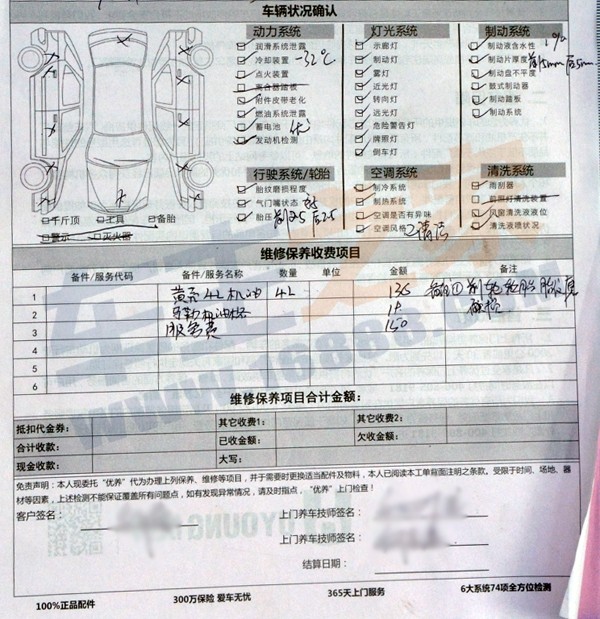 车辆状况确认
动力系统 灯光系统 制动系统
润滑系统泄露 示廓灯 制动液含水性 1%
冷却装置 -32℃ 制动灯 制动片厚度 前5mm 后5mm
点火装置 雾灯 制动盘不平度
离合器踏板 近光灯 鼓式制动器
附件皮带老化 转向灯 制动踏板
燃油系统泄露 远光灯 制动系统
蓄电池 优 危险警告灯
发动机检测 牌照灯
倒车灯
行驶系统/轮胎 空调系统 清洗系统
胎纹磨损程度 制冷系统 雨刮器
气门嘴状态 制热系统 前照灯清洗装置
胎压 前2.5 后2.5 空调是否有异味 风窗清洗液液位
空调风格 清洁 清洗液喷状况
千斤顶 工具 备胎
警示 灭火器
维修保养收费项目
备件/服务代码 备件/服务名称 数量 单位 金额 备注
1 黄壳4L机油 4L
2 机油格
3 服务费 150
4
5
6
维修保养项目合计金额:
抵扣代金券: 其它收费1: 其它收费2:
合计收款: 已收金额: 欠收金额:
现金收款: 大写:
免责声明:本人现委托“优养”代为办理上列保养、维修等项目,并于需要时更换适当配件及物料,本人已阅读本工单背面注明之条款。受限于时间、场地、器
材等因素,上述检测不能保证覆盖所有问题点,如有发现异常情况,请及时指点,“优养”上门检查!
客户签名: 上门养车技师签名:
上门养车技师签名:
结算日期:
100%正品配件 300万保险 爱车无忧 365天上门服务 6大系统74项全方位检测
www.16888.com